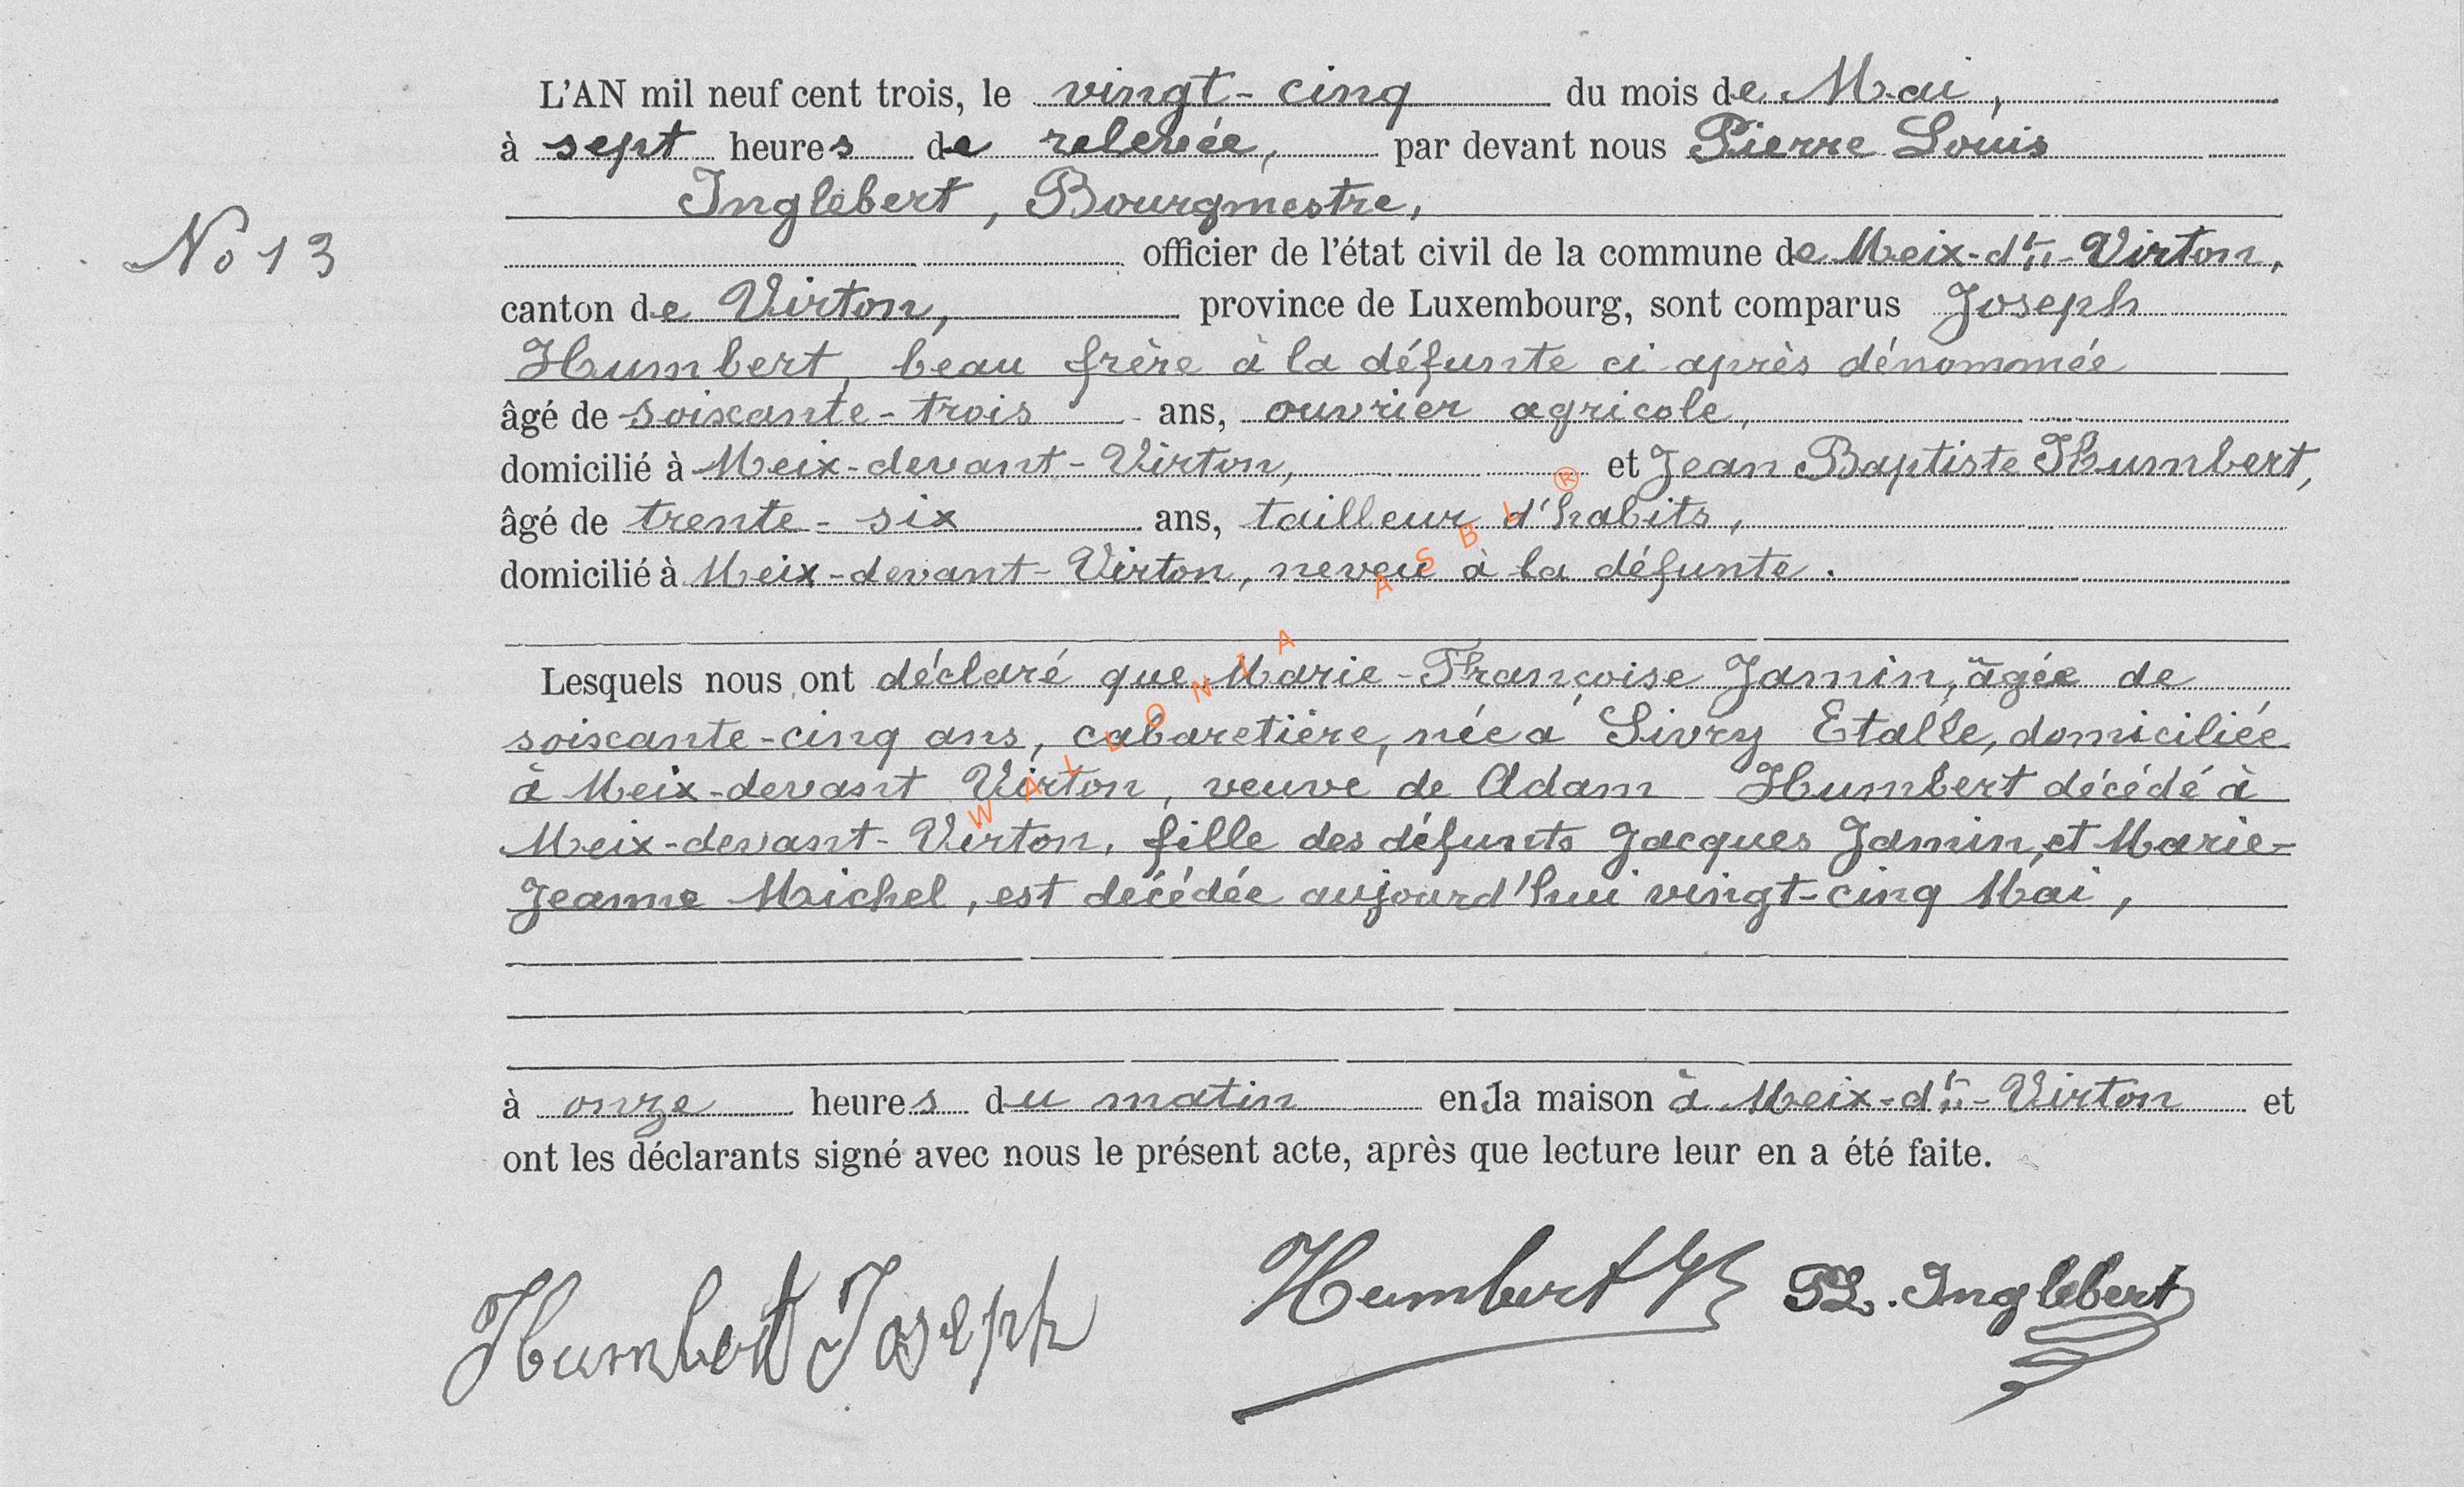 L'AN mil neuf cent trois, le vingt-cinq du mois de Mai,
à sept heures de relevée, par devant nous Pierre Louis
Inglebert, Bourgmestre,
No 13
officier de l'état civil de la commune de Meix-dt-Virton,
canton de Virton, province de Luxembourg, sont comparus Joseph
Humbert, beau frère à la défunte ci-après dénommée
âgé de soixante-trois ans, ouvrier agricole,
domicilié à Meix-devant-Virton, et Jean Baptiste Humbert,
âgé de trente-six ans, tailleur d'habits,
domicilié à Meix-devant-Virton, neveu à la défunte.
Lesquels nous ont déclaré que Marie-Françoise Jamin, âgée de
soixante-cinq ans, cabaretière, née à Sivry Etalle, domiciliée
à Meix-devant Virton, veuve de Adam Humbert décédé à
Meix-devant-Virton, fille des défunts Jacques Jamin, et Marie-
Jeanne Michel, est décédée aujourd'hui vingt-cinq Mai,
à onze heures du matin en la maison à Meix-dt-Virton et
ont les déclarants signé avec nous le présent acte, après que lecture leur en a été faite.
Humbert Joseph
Humbert JB
PL. Inglebert
WALLONIA ASBL ®